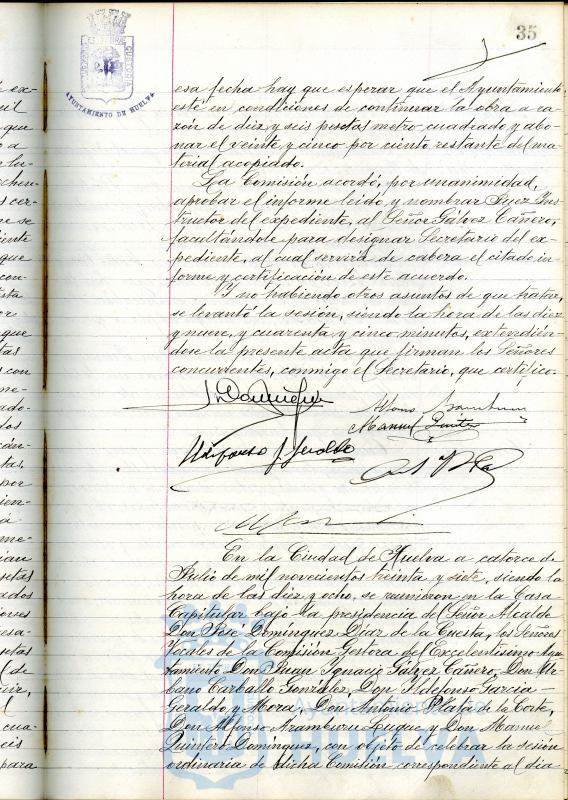 35
AYUNTAMIENTO DE HUELVA
esa fecha hay que esperar que el Ayuntamiento
esté en condiciones de continuar la obra a ra-
zón de diez y seis pesetas metro cuadrado y abo-
nar el veinte y cinco por ciento restante del ma-
terial acopiado.
La Comisión acordó, por unanimidad,
aprobar el informe leido, y nombrar Juez Ins-
tructor del expediente, al Señor Gálvez Cañero,
facultándole para designar Secretario del ex-
pediente, al cual servirá de cabeza el citado in-
forme y certificación de este acuerdo.
Y no habiendo otros asuntos de que tratar,
se levantó la sesión, siendo la hora de las diez
y nueve, y cuarenta y cinco minutos, extendién-
dose la presente acta que firman los Señores
concurrentes, conmigo el Secretario, que certifico.
Alfonso Aramburu
Manuel Quintero
Ildefonso G. Geraldo
En la Ciudad de Huelva a catorce de
Julio de mil novecientos treinta y siete, siendo la
hora de las diez y ocho, se reunieron en la Casa
Capitular bajo la presidencia del Señor Alcalde
Don José Dominguez Diaz de la Cuesta, los Señores
Vocales de la Comisión Gestora del Excelentisimo Ayun-
tamiento Don Juan Ignacio Gálvez Cañero, Don Ur-
bano Carballo González, Don Ildefonso Garcia-
Geraldo y Mora, Don Antonio Plata de la Corte,
Don Alfonso Aramburu Luque y Don Manuel
Quintero Dominguez, con objeto de celebrar la sesión
ordinaria de dicha Comisión correspondiente al dia